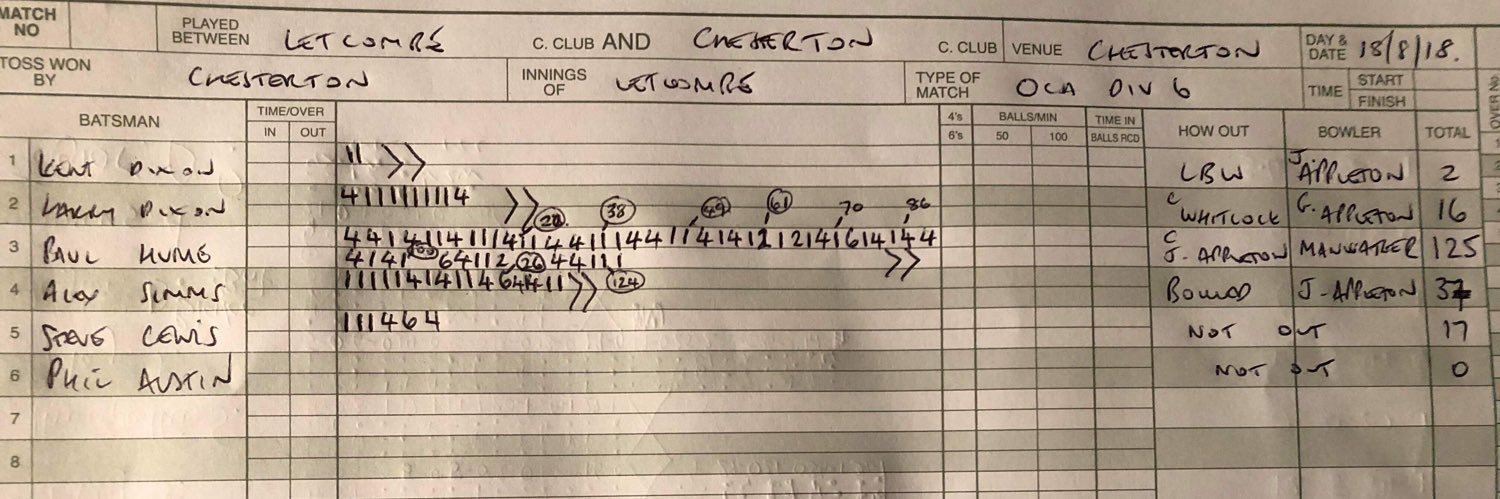 MATCH NO PLAYED BETWEEN LETCOMBE C. CLUB AND CHESTERTON C. CLUB VENUE CHESTERTON DAY & DATE 18/8/18.
TOSS WON BY CHESTERTON INNINGS OF LETCOMBE TYPE OF MATCH OCA DIV 6 TIME START FINISH
OVER No.
BATSMAN TIME/OVER IN OUT 4's 6's BALLS/MIN 50 100 TIME IN BALLS RCD HOW OUT BOWLER TOTAL
1 KENT DIXON 11 >> LBW J APPLETON 2
2 HARRY DIXON 41111111114 >> C WHITLOCK G. APPLETON 16
38 49 61 70 86
3 PAUL HUME C J. APPLETON MANWARER 125
4 ALEX SIMMS >> 124 BOWLED J-APPLETON 37
5 STEVE LEWIS 111464 NOT OUT 17
6 PHIL AUSTIN NOT OUT 0
7
8